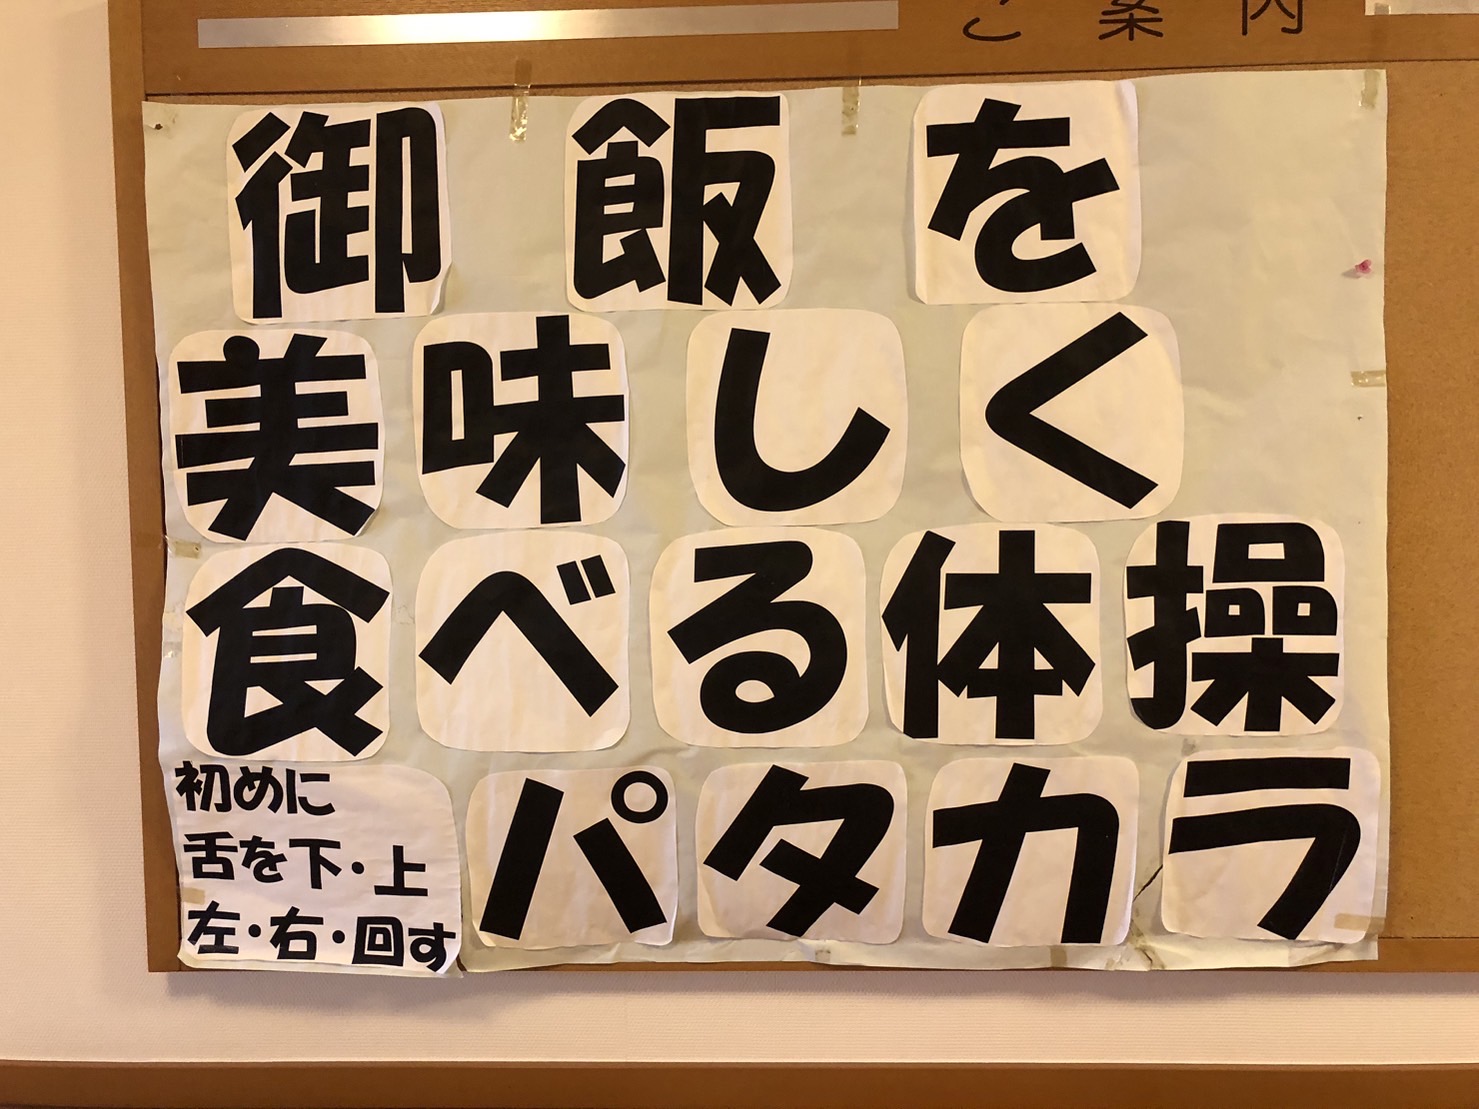 ご案内
御飯を
美味しく
食べる体操
パタカラ
初めに
舌を下・上
左・右・回す